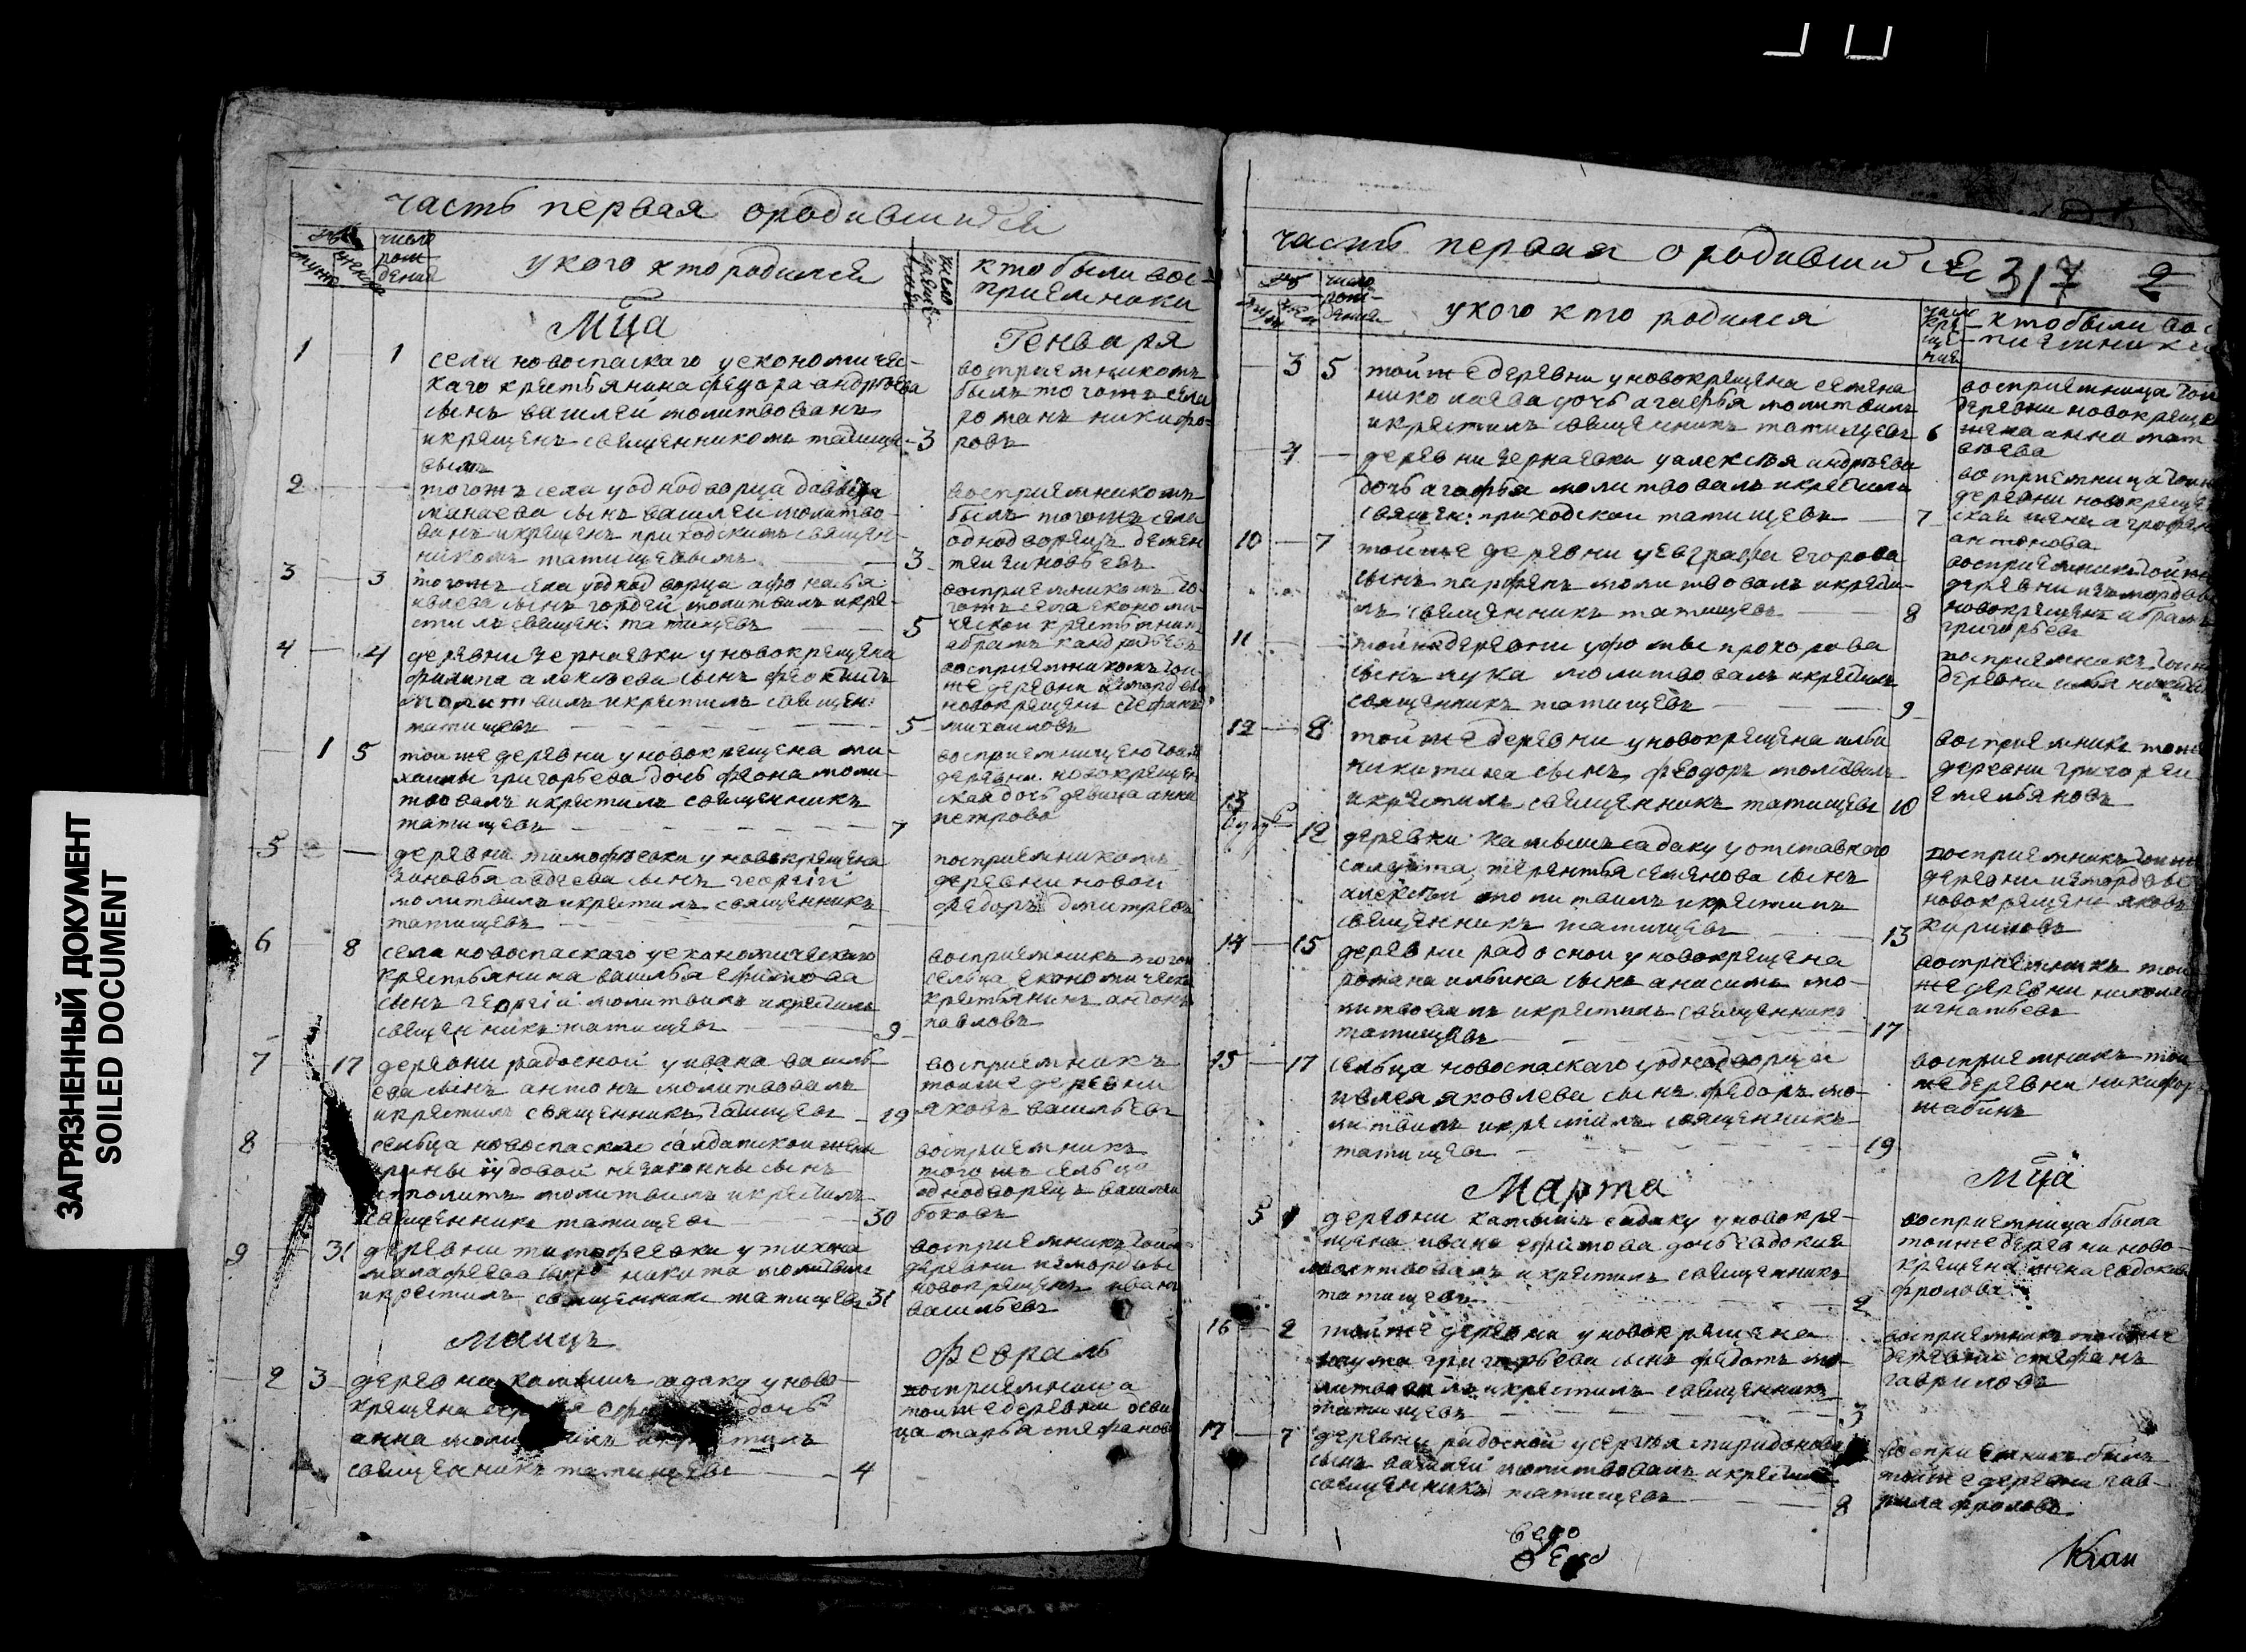 ЗАГРЯЗНЕННЫЙ ДОКУМЕНТ
SOILED DOCUMENT
часть первая ородившихся
число рождения
укого ктородился
число крещения
кто были вос-
приемники
Мца
Генваря
1 1 села новоспаскаго уекономичес-
каго крестьянина федора андреева
сынъ василей молитвованъ
икрещенъ священникомъ татище- 3
вымъ
восприемникомъ
былъ тогожъ села
романъ никифо-
ровъ
2 тогожъ села уоднодворца давыда
минаева сынъ василеи молитво-
ванъ икрещенъ приходскимъ священ-
никомъ татищевымъ 3
восприемникомъ
былъ тогожъ села
однодворецъ демен
теи
3 3 тогожъ села уоднодворца афонасья
ивлева сынъ гордей молитвилъ икре-
стилъ священ: татищевъ 5
восприемникомъ то-
гожъ села економи-
ческои крестьянинъ
абрамъ
4 4 деревни чернаевки уновокрещена
филипа алексеева сынъ
молитвилъ икрестилъ священ:
татищевъ 5
восприемникомъ тои
же деревни измордвы
новокрещенъ стефанъ
михаиловъ
1 5 тои же деревни уновокрещена ми-
хаилы григорьева дочь феона моли-
твовалъ икрестилъ священникъ
татищевъ 7
восприемницею тоиже
деревни новокрещен
ская дочь девица анна
петрова
5 деревни тимофеевки уновокрещена
зиновья авдеева сынъ георгіи
молитвилъ икрестилъ священникъ
татищевъ
восприемникомъ
деревни новои
федоръ дмитревъ
6 8 села новоспаскаго уекономическаго
крестьянина василья ефимова
сынъ георгіи молитвилъ икрестилъ
священникъ татищевъ 9
восприемникъ тогож
сельца економическ
крестьянинъ антонъ
павловъ
7 17 деревни радосной уивана василь-
ева сынъ антонъ молитвовалъ
икрестилъ священникъ татищевъ 19
восприемникъ
тоиже деревни
яковъ васильевъ
8 сельца новоспаское салдатской жены
незаконны сынъ
ипполитъ молитвилъ икрестилъ
священникъ татищевъ 30
восприемникъ
тогожъ сельца
однодворецъ василеи
боковъ
9 31 деревни тимофеевки утихона
малафеева сынъ никита молитвилъ
икрестилъ священникъ татищевъ 31
восприемникъ тоиж
деревни измордвы
новокрещенъ иванъ
васильевъ
Маицъ
февраль
2 3 деревни камышъ садаку уново-
крещена дочь
анна икрестилъ
священникъ татищевъ 4
восприемница
тоиже деревни деви
ца марья стефанов
часть первая ородившихся 317 2
число рождения
укого кто родился
число крещения
ктобыли вос
приемники
3 5 тойже деревни уновокрещена семена
николаева дочь агафья молитвилъ
икрестилъ священникъ татищевъ 6
восприемница тои
деревни новокреще
жена анна мат-
веева
4 деревни чернаевки уалексея андреева
дочь агафья молитвовалъ икрестилъ
священ: приходскои татищевъ 7
восприемница тоиж
деревни новокреще
ская жена
антонова
10 7 тойже деревни уевграфа егорова
сынъ парфенъ молитвовалъ икрести-
лъ священникъ татищевъ 8
восприемникъ тоиж
деревни измордвы
новокрещенъ абрамъ
григорьевъ
11 тойже деревни уфомы прохорова
сынъ лука молитвовалъ икрестилъ
священникъ татищевъ 9
восприемникъ тоиж
деревни илья никити
12 8 тойже деревни уновокрещена ильи
никитина сынъ феодоръ молитвилъ
икрестилъ священникъ татищевъ 10
восприемникъ тоиже
деревни григореи
емельяновъ
13
12 деревни камышъ садаку уотставнаго
салдата терентья семенова сынъ
алексей молитвилъ икрестилъ
священникъ татищевъ 13
восприемникъ тоиж
деревни измордвы
новокрещенъ яковъ
кириловъ
14 15 деревни радоснои уновокрещена
романа ильина сынъ анисимъ мо-
литвовалъ икрестилъ священникъ
татищевъ 17
восприемникъ тои
же деревни николаи
игнатьевъ
15 17 сельца новоспаскаго уоднодворца
ивлея яковлева сынъ федоръ мо-
литвилъ икрестилъ священникъ
татищевъ 19
восприемникъ тои
же деревни никифоръ
шабинъ
Марта
Мца
5 1 деревни камышъ садаку уновокре-
щена ивана ефимова дочь евдокия
молитвовалъ икрестилъ священникъ
татищевъ 2
восприемница была
тоиже деревни ново-
крещена жена евдокия
фролова
16 2 тойже деревни уновокрещена
наума григорьева сынъ федотъ мо-
литвовалъ икрестилъ священникъ
татищевъ 3
восприемникъ тоиже
деревни стефанъ
гавриловъ
17 7 деревни радосной усергея спиридонова
сынъ василей молитвовалъ икрестилъ
священникъ татищевъ 8
восприемникъ былъ
тойже деревни гав-
рила фроловъ